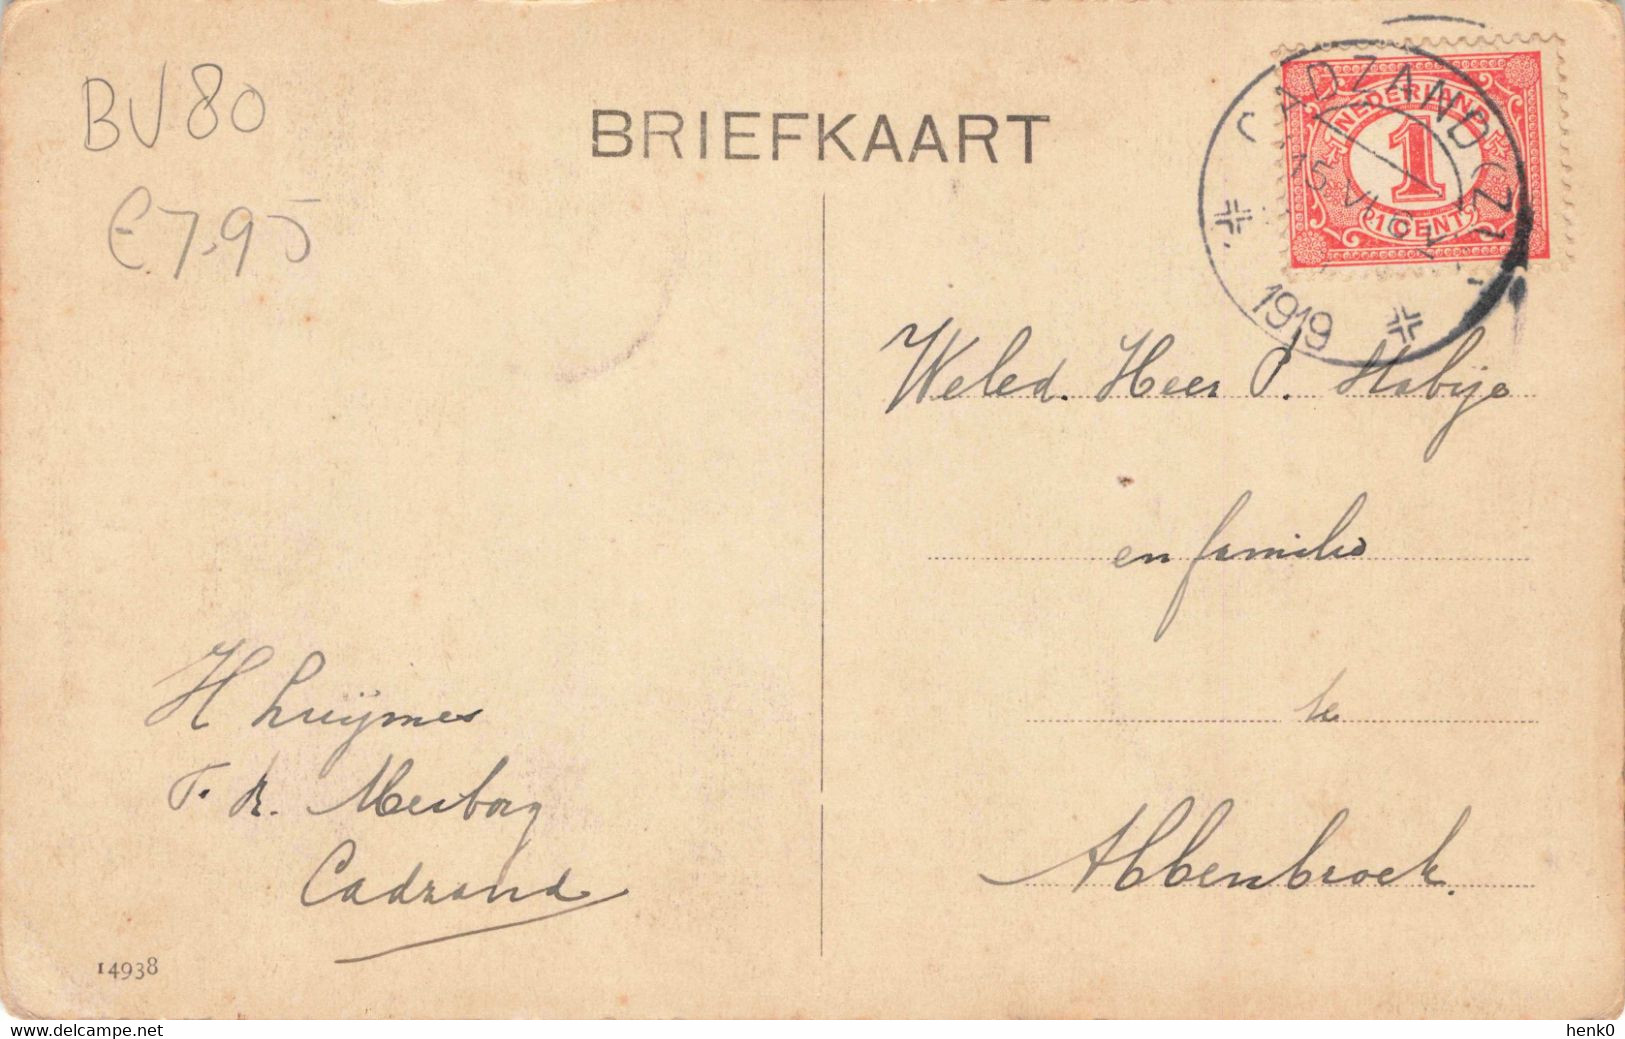 BV80
€7.95
BRIEFKAART
CADZAND (Z)
NEDERLAND
1
1 CENT
15 VI
1919
Weled. Heer P.
en familie
te
Abbenbroek.
H Luijmes
Cadzand
14938
www.delcampe.net
henk0